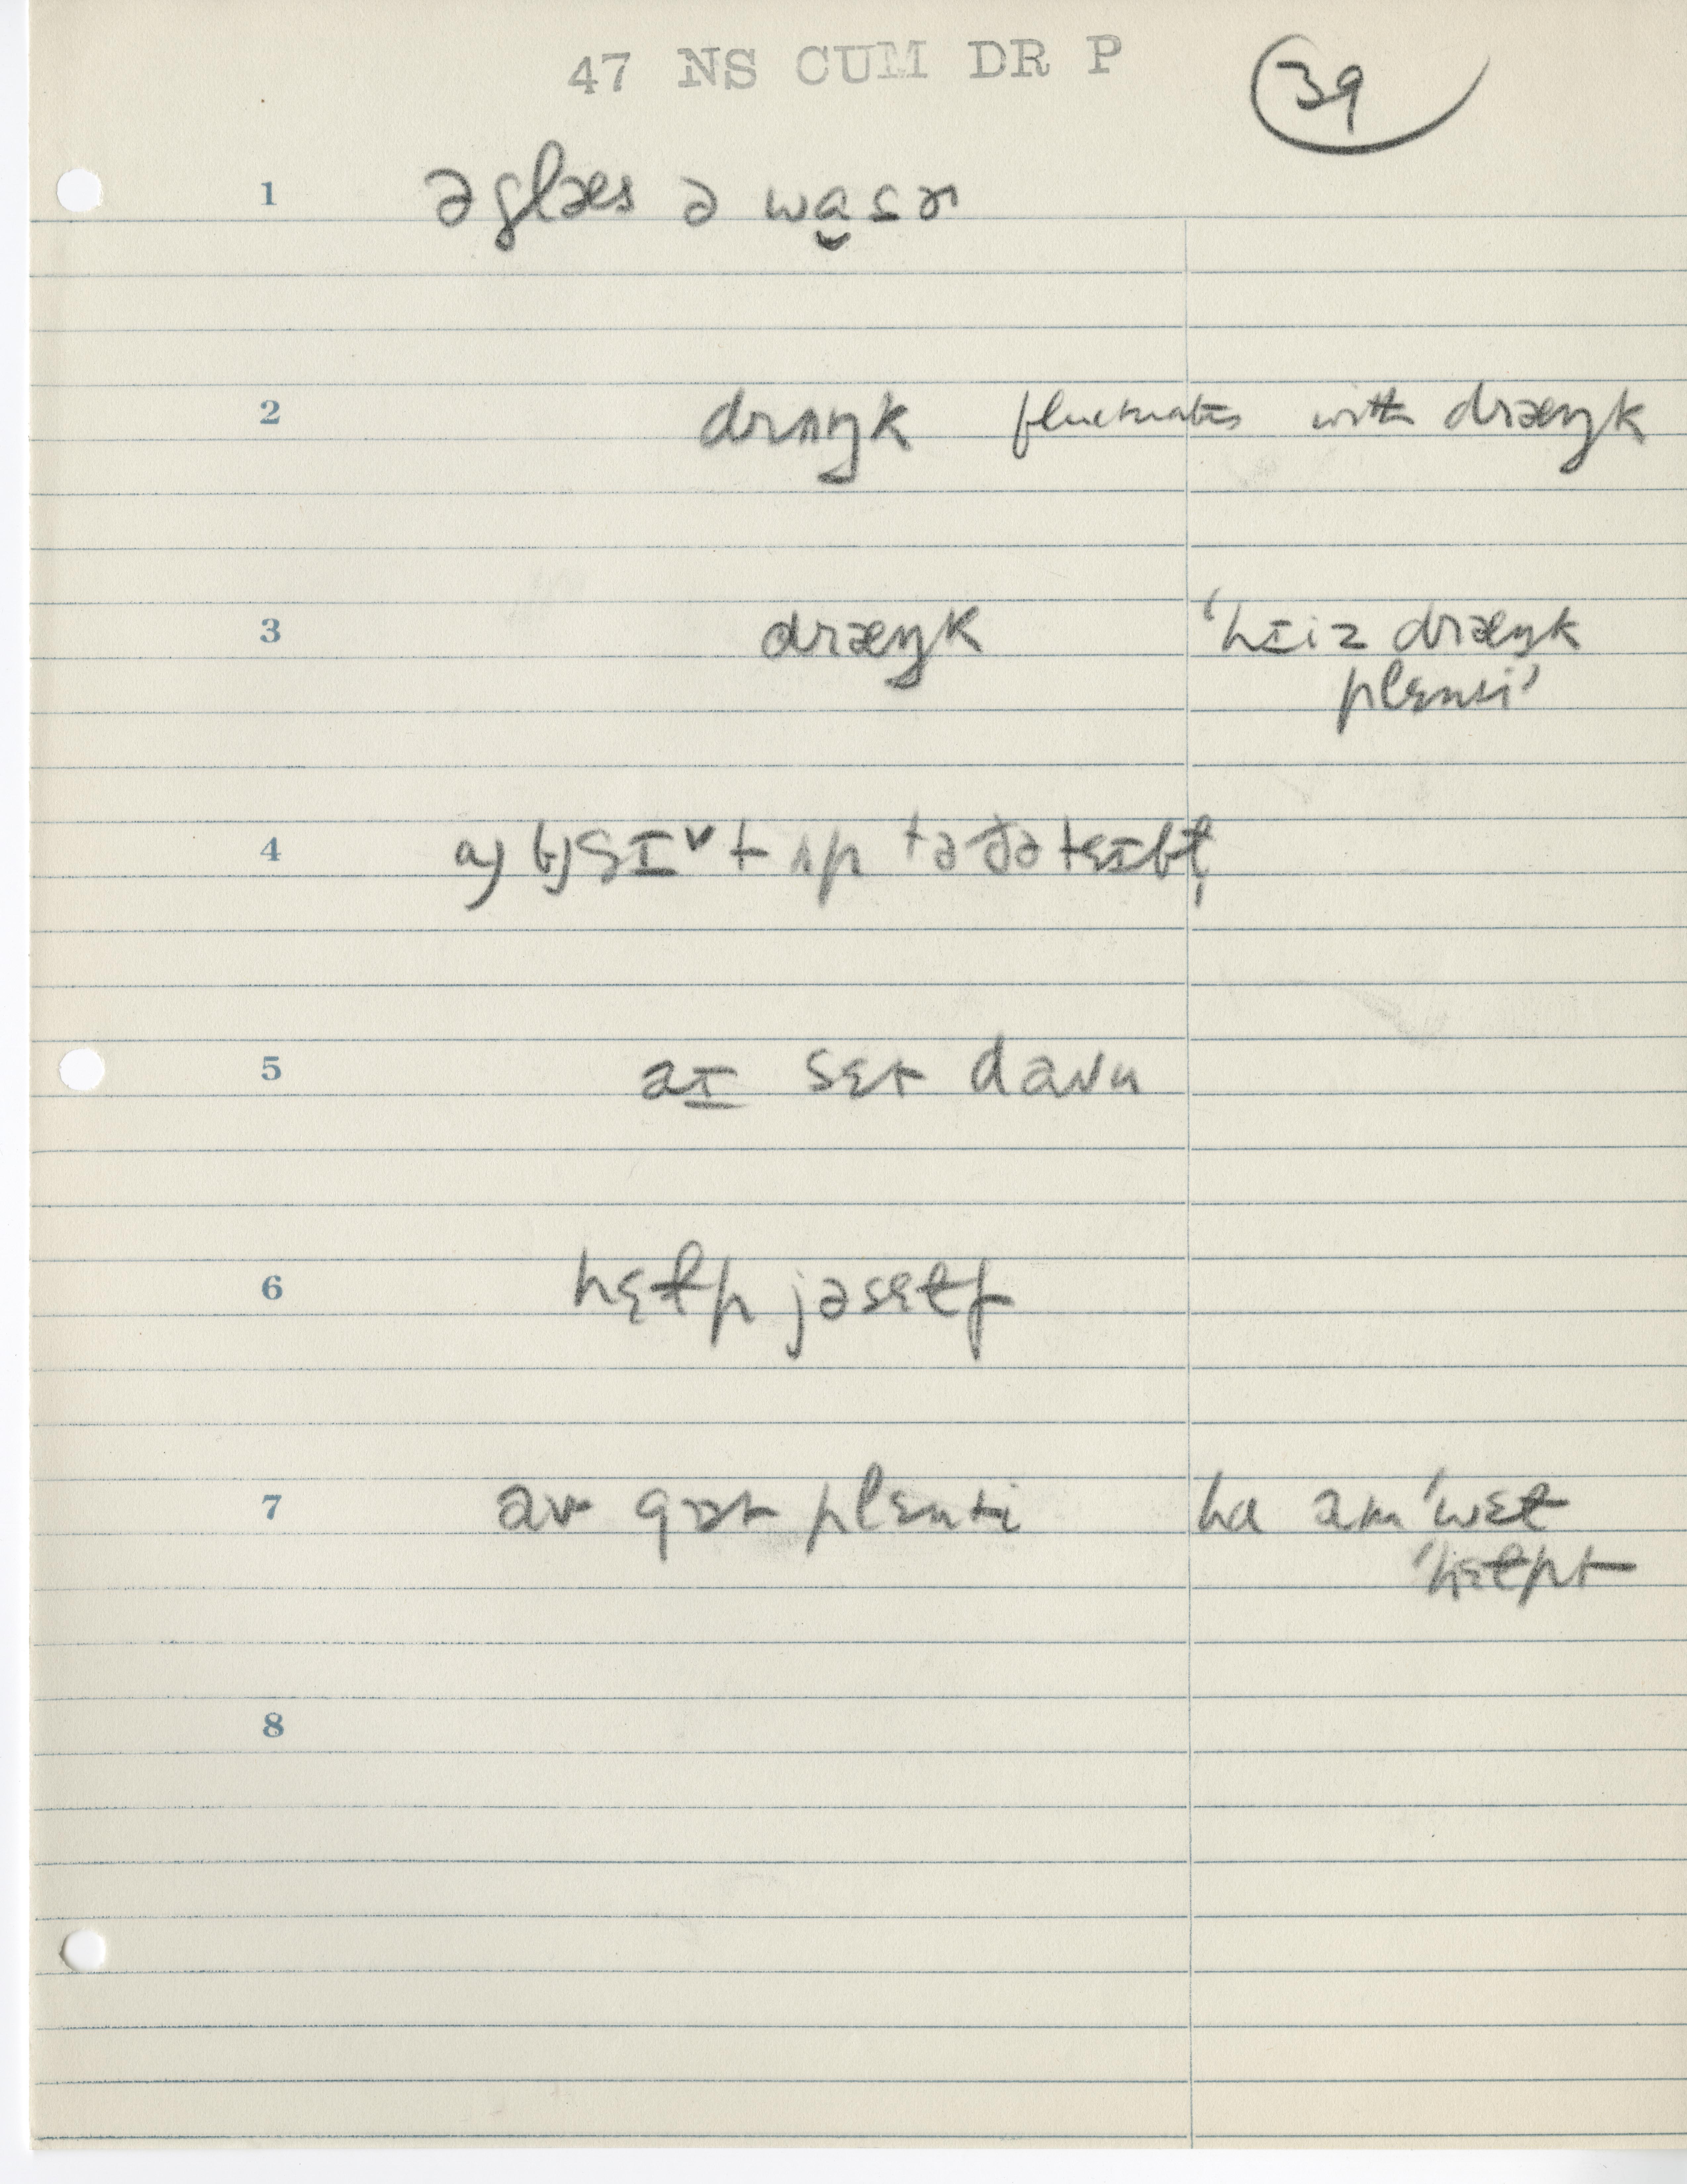 47 NS CUM DR P
39
1 ə glæs ə wɑ̬s̬ɚ
2 drʌŋk fluctuates with dræŋk
3 dræŋk 'hɪiz dræŋk
plɛnti'
4 a) b) sɪ˅t ʌp tə ðə tɛɪbɫ̩
5 aɪ sɛt daʊn
6 hɛɫp jəsɛɫf
7 av gɑt plɛnti ha am 'wɛɫ
'hɛɫpt
8